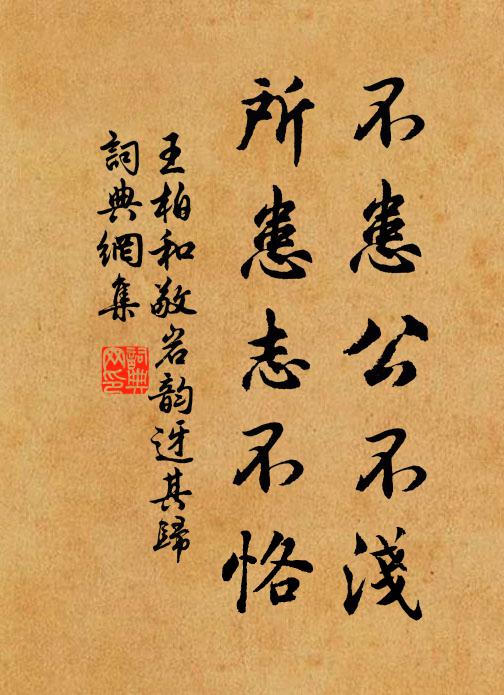 不患公不淺
所患志不恪
王柏和敬岩韵迓其歸
詞典網集
詞典網印